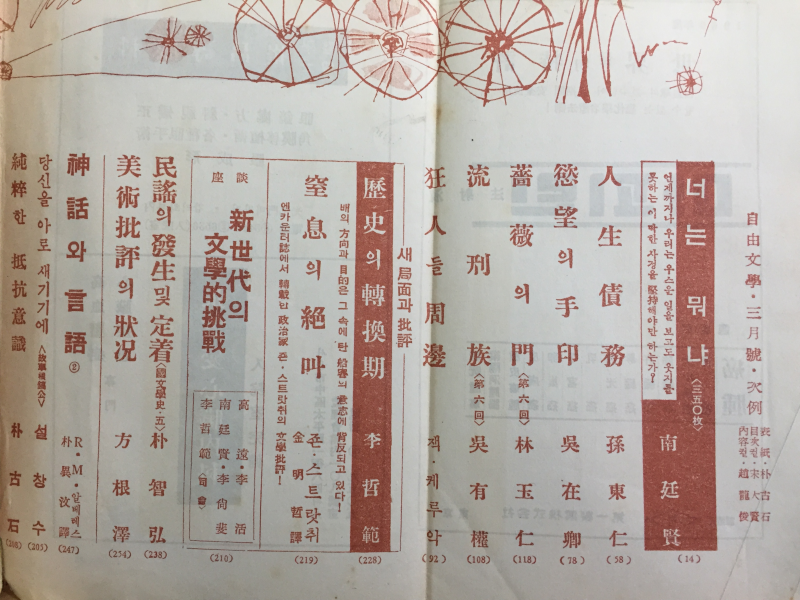 自由文學·三月號·次例
表紙·朴古石
目次컽·宋大賢
內容컽·趙龍俊
너는 뭐냐 <三五〇枚> 南廷賢 (14)
언제까지나 우리는 우스운 일을 보고도 웃지를
못하는 이 딱한 사정을 堅持해야만 하는가?
人生債務 孫東仁 (58)
慾望의 手印 吳在卿 (78)
薔薇의 門 <第六回> 林玉仁 (118)
流刑族 <第六回> 吳有權 (108)
狂人들 周邊 잭·케루악 (92)
새 局面과 批評
歷史의 轉換期 李哲範 (228)
배의 方向과 目的은 그 속에 탄 船客의 意志에 背反되고 있다!
窒息의 絕叫 죤·스트랏취
金明哲 譯 (219)
엔카운터誌에서 轉載의 政治家 죤·스트랏취의 文學批評!
座談
新世代의
文學的 挑戰
高遠·李活
南廷賢·李尙斐
李哲範<司會>
(210)
民謠의 發生 및 定着 <國文學史·五> 朴智弘 (238)
美術批評의 狀況 方根澤 (254)
神話와 言語 ② R·M·알베레스
朴異汶 譯 (247)
당신을 아로새기기에 <故事補錫公> 설창수 (205)
純粹한 抵抗意識 朴古石 (208)